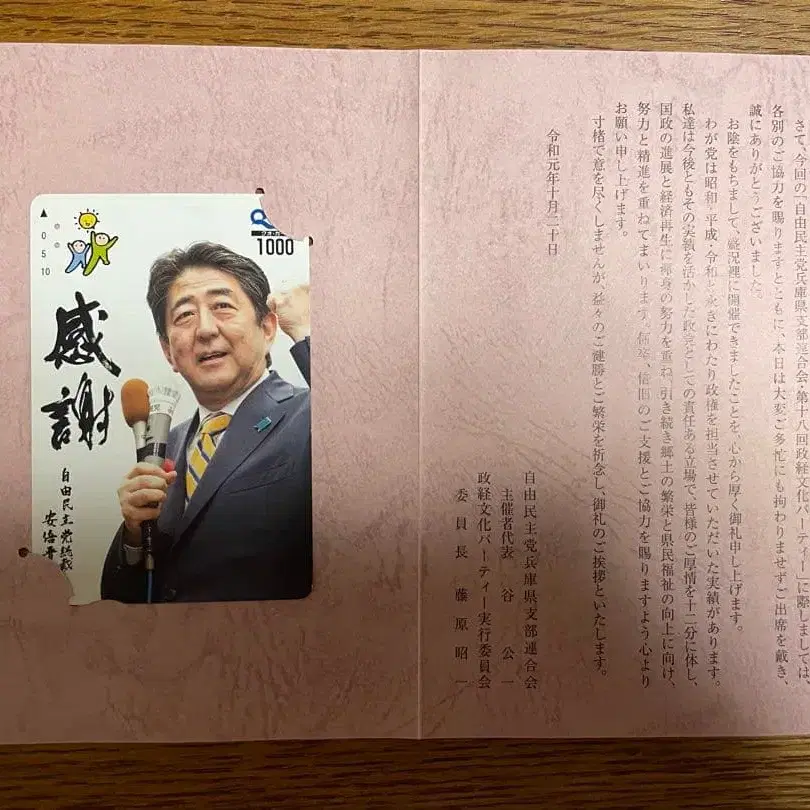 0
5
10
クオ・カード
1000
感謝
自由民主党総裁
安倍晋
さて、今回の「自由民主党兵庫県支部連合会・第十八回政経文化パーティー」に際しましては、
各別のご協力を賜りますとともに、本日は大変ご多忙にも拘わりませずご出席を戴き、
誠にありがとうございました。
お陰をもちまして、盛況裡に開催できましたことを、心から厚く御礼申し上げます。
わが党は昭和・平成・令和と永きにわたり政権を担当させていただいた実績があります。
私達は今後ともその実績を活かした政党としての責任ある立場で、皆様のご厚情を十二分に体し、
国政の進展と経済再生に渾身の努力を重ね、引き続き郷土の繁栄と県民福祉の向上に向け、
努力と精進を重ねてまいります。何卒、倍旧のご支援とご協力を賜りますよう心より
お願い申し上げます。
寸楮で意を尽くしませんが、益々のご健勝とご繁栄を祈念し、御礼のご挨拶といたします。
令和元年十月二十日
自由民主党兵庫県支部連合会
主催者代表 谷 公一
政経文化パーティー実行委員会
委員長 藤原昭一